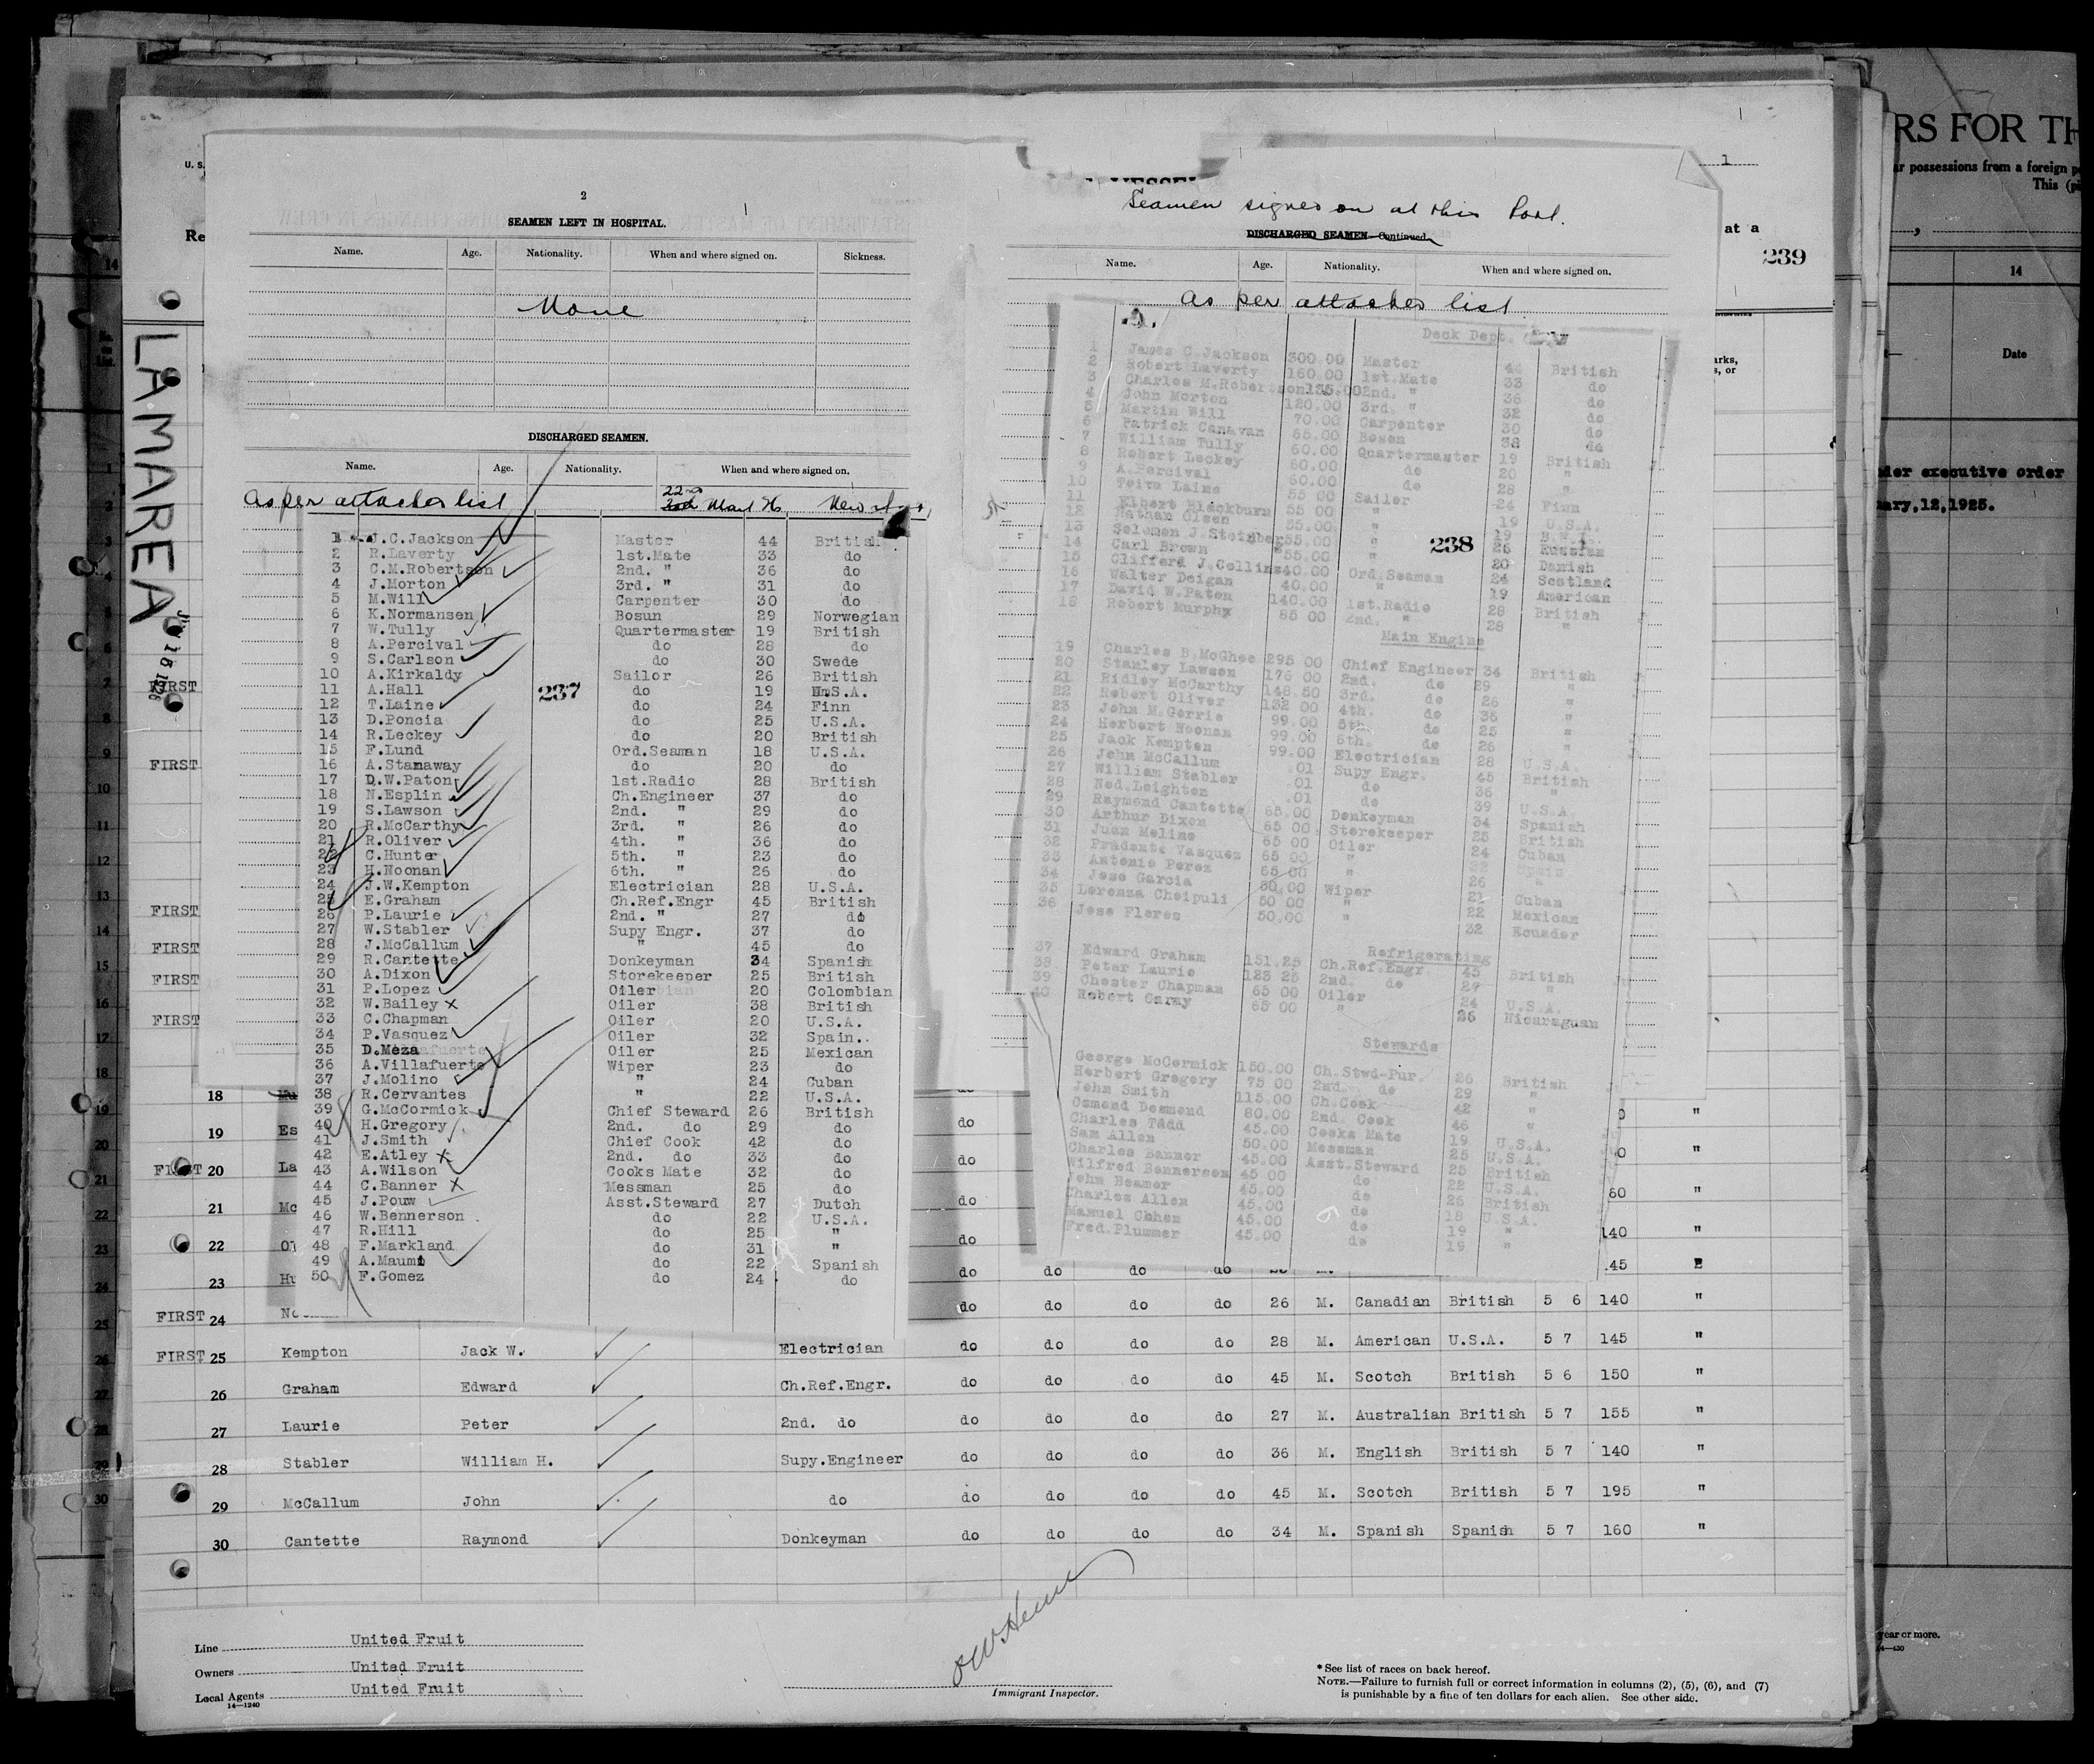 RS FOR TH
ar possessions from a foreign p
This (p
14
Date
der executive order
ary,12,1925.
year or more.
1
at a
239
arks,
s, or
U. S.
Re
LAMAREA
2
SEAMEN LEFT IN HOSPITAL.
Name. Age. Nationality. When and where signed on. Sickness.
None
DISCHARGED SEAMEN.
Name. Age. Nationality. When and where signed on.
As per attached list 22nd
237
1 J.C.Jackson Master 44 British
2 R.Laverty 1st.Mate 33 do
3 C.M.Robertson 2nd. " 36 do
4 J.Morton 3rd. " 31 do
5 M.Will Carpenter 30 do
6 K.Normansen Bosun 29 Norwegian
7 W.Tully Quartermaster 19 British
8 A.Percival do 28 do
9 S.Carlson do 30 Swede
10 A.Kirkaldy Sailor 26 British
11 A.Hall do 19 U.S.A.
12 T.Laine do 24 Finn
13 D.Poncia do 25 U.S.A.
14 R.Leckey do 20 British
15 F.Lund Ord.Seaman 18 U.S.A.
16 A.Stanaway do 20 do
17 D.W.Paton 1st.Radio 28 British
18 N.Esplin Ch.Engineer 37 do
19 S.Lawson 2nd. " 29 do
20 R.McCarthy 3rd. " 26 do
21 R.Oliver 4th. " 36 do
22 C.Hunter 5th. " 23 do
23 H.Noonan 6th. " 26 do
24 J.W.Kempton Electrician 28 U.S.A.
25 E.Graham Ch.Ref.Engr 45 British
26 P.Laurie 2nd. " 27 do
27 W.Stabler Supy Engr. 37 do
28 J.McCallum " 45 do
29 R.Cantette Donkeyman 34 Spanish
30 A.Dixon Storekeeper 25 British
31 P.Lopez Oiler 20 Colombian
32 W.Bailey Oiler 38 British
33 C.Chapman Oiler 20 U.S.A.
34 P.Vasquez Oiler 32 Spain..
35 D.Meza Oiler 25 Mexican
36 A.Villafuerte Wiper 23 do
37 J.Molino " 24 Cuban
38 R.Cervantes " 22 U.S.A.
39 G.McCormick Chief Steward 26 British
40 H.Gregory 2nd. do 29 do
41 J.Smith Chief Cook 42 do
42 E.Atley 2nd. do 33 do
43 A.Wilson Cooks Mate 32 do
44 C.Banner Messman 25 do
45 J.Pouw Asst.Steward 27 Dutch
46 W.Bennerson do 22 U.S.A.
47 R.Hill do 25 "
48 F.Markland do 31 "
49 A.Maumi do 22 Spanish
50 F.Gomez do 24 do
Seamen signed on at this Port.
DISCHARGED SEAMEN—Continued.
Name. Age. Nationality. When and where signed on.
As per attached list
238
Deck Dept.
1 James C.Jackson 300.00 Master 44 British
2 Robert Laverty 160.00 1st.Mate 33 do
3 Charles M.Robertson 135.00 2nd. " 36 do
4 John Morton 120.00 3rd. " 32 do
5 Martin Will 70.00 Carpenter 30 do
6 Patrick Canavan 65.00 Bosun 38 do
7 William Tully 60.00 Quartermaster 19 British
8 Robert Leckey 60.00 do 20 "
9 A.Percival 60.00 do 28 "
10 Toivo Laine 55 00 Sailor 24 Finn
11 Elbert Blackburn 55 00 " 19 U.S.A.
12 Nathan Olsen 55.00 " 19
13 Solomon J.Steinberg 55.00 " 26 Russian
14 Carl Brown 55.00 " 20 Danish
15 Clifford J.Collins 40.00 Ord.Seaman 24 Scotland
16 Walter Deigan 40.00 " 19 American
17 David W.Paton 140.00 1st.Radio 28 British
18 Robert Murphy 85 00 2nd. " 28 "
Main Engine
19 Charles B.McGhee 295 00 Chief Engineer 34 British
20 Stanley Lawson 176 00 2nd. do 29 "
21 Ridley McCarthy 148.50 3rd. do 26 "
22 Robert Oliver 132 00 4th. do 36 "
23 John M.Gorrie 99.00 5th. do 25 "
24 Herbert Noonan 99.00 6th. do 26 "
25 Jack Kempton 99.00 Electrician 28 U.S.A.
26 John McCallum .01 Supy Engr. 45 British
27 William Stabler .01 do 36 "
28 Ned.Leighton .01 do 39 U.S.A.
29 Raymond Cantette 65.00 Donkeyman 34 Spanish
30 Arthur Dixon 65 00 Storekeeper 25 British
31 Juan Moline 65 00 Oiler 24 Cuban
32 Prudente Vasquez 65 00 " 32 Spain
33 Antonio Perez 65 00 " 26 "
34 Jose Garcia 50.00 Wiper 21 Cuban
35 Lorenza Cheipuli 50 00 " 22 Mexican
36 Jose Flores 50.00 " 32 Ecuador
Refrigerating
37 Edward Graham 151.25 Ch.Ref.Engr. 45 British
38 Peter Laurie 123 25 2nd. do 27 "
39 Chester Chapman 65 00 Oiler 24 U.S.A.
40 Robert Garay 65 00 " 26 Nicaraguan
Stewards
George McCormick 150.00 Ch.Stwd-Pur. 26 British
Herbert Gregory 75 00 2nd. do 29 "
John Smith 115.00 Ch.Cook 42 "
Osmond Desmond 80.00 2nd. Cook 46 "
Charles Tädd 45.00 Cooks Mate 19 U.S.A.
Sam Allen 50.00 Messman 25 U.S.A.
Charles Banner 45.00 Asst.Steward 25 British
Wilfred Bennerson 45 00 do 22 U.S.A.
John Beamer 45.00 do 26 British
Charles Allen 45.00 do 18 U.S.A.
Manuel Cohen 45.00 do 19 "
Fred.Plummer 45.00 do 19 "
FIRST
FIRST
FIRST
FIRST
FIRST
FIRST
18
19 Es
FIRST 20 La
21 Mc
22
23 Hu
FIRST 24 No do do do do 26 M. Canadian British 5 6 140 "
FIRST 25 Kempton Jack W. Electrician do do do do 28 M. American U.S.A. 5 7 145 "
26 Graham Edward Ch.Ref.Engr. do do do do 45 M. Scotch British 5 6 150 "
27 Laurie Peter 2nd. do do do do do 27 M. Australian British 5 7 155 "
28 Stabler William H. Supy.Engineer do do do do 36 M. English British 5 7 140 "
29 McCallum John do do do do do 45 M. Scotch British 5 7 195 "
30 Cantette Raymond Donkeyman do do do do 34 M. Spanish Spanish 5 7 160 "
Line United Fruit
Owners United Fruit
Local Agents United Fruit
14—1240
Immigrant Inspector.
* See list of races on back hereof.
NOTE.—Failure to furnish full or correct information in columns (2), (5), (6), and (7)
is punishable by a fine of ten dollars for each alien. See other side.